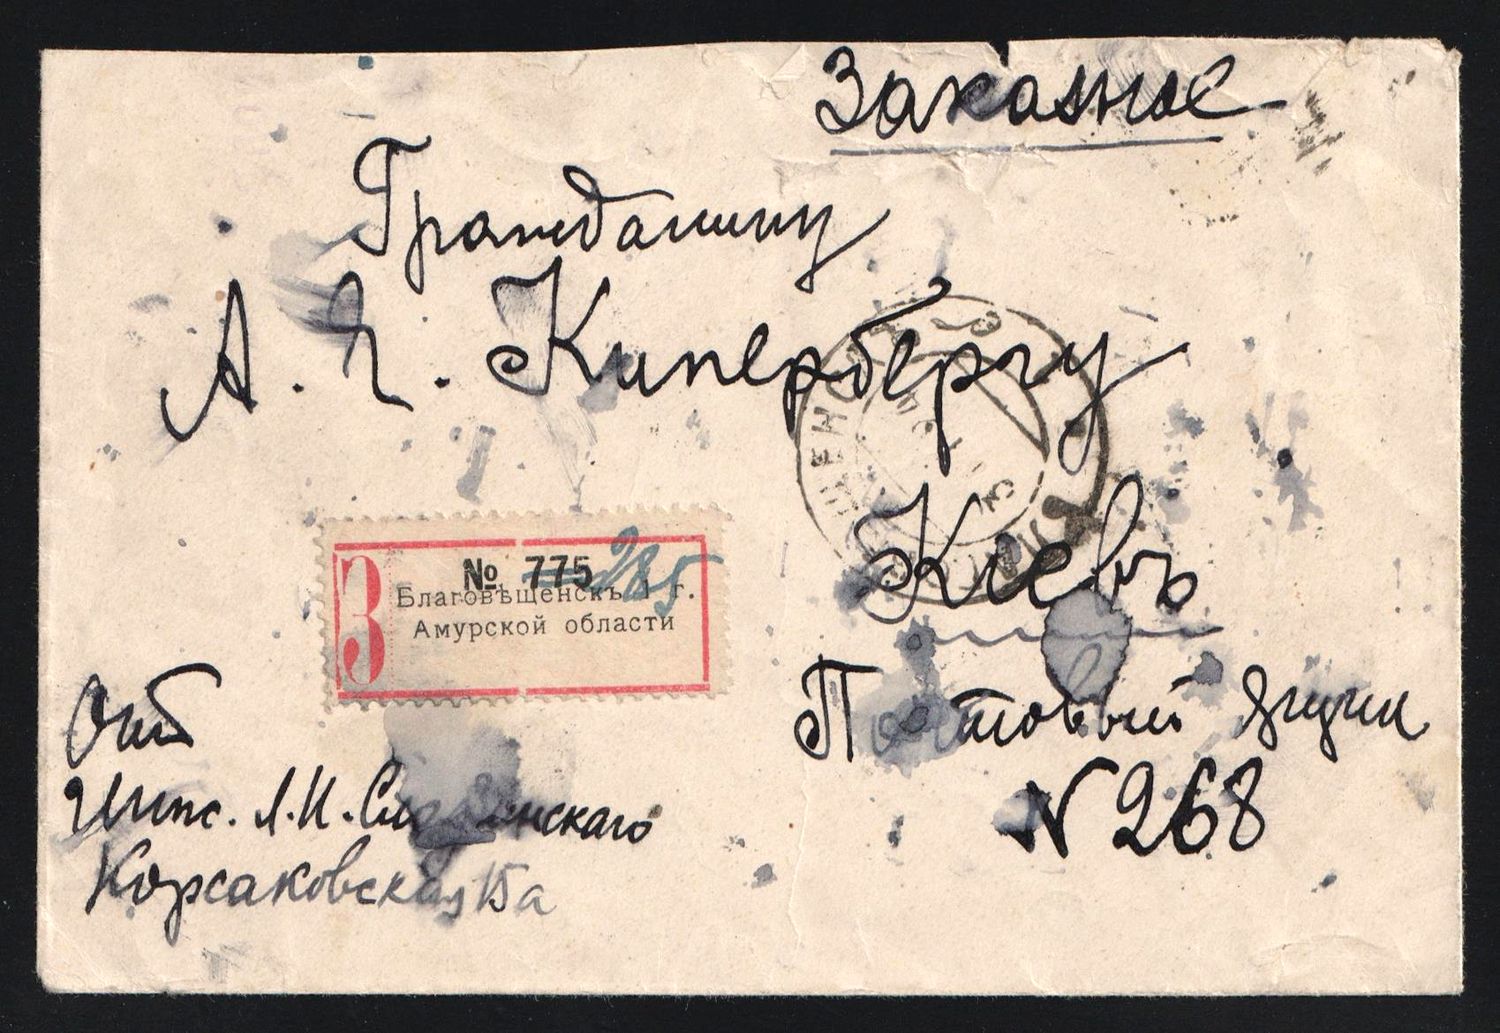 Заказное
Гражданину
А. Я. Кипербергу
Кіевъ
Почтовый ящик
N 268
З
№ 775 285
Благовѣщенскъ 1 г.
Амурской области
Отъ
Инж. Л. И.
Корсаковская 15а